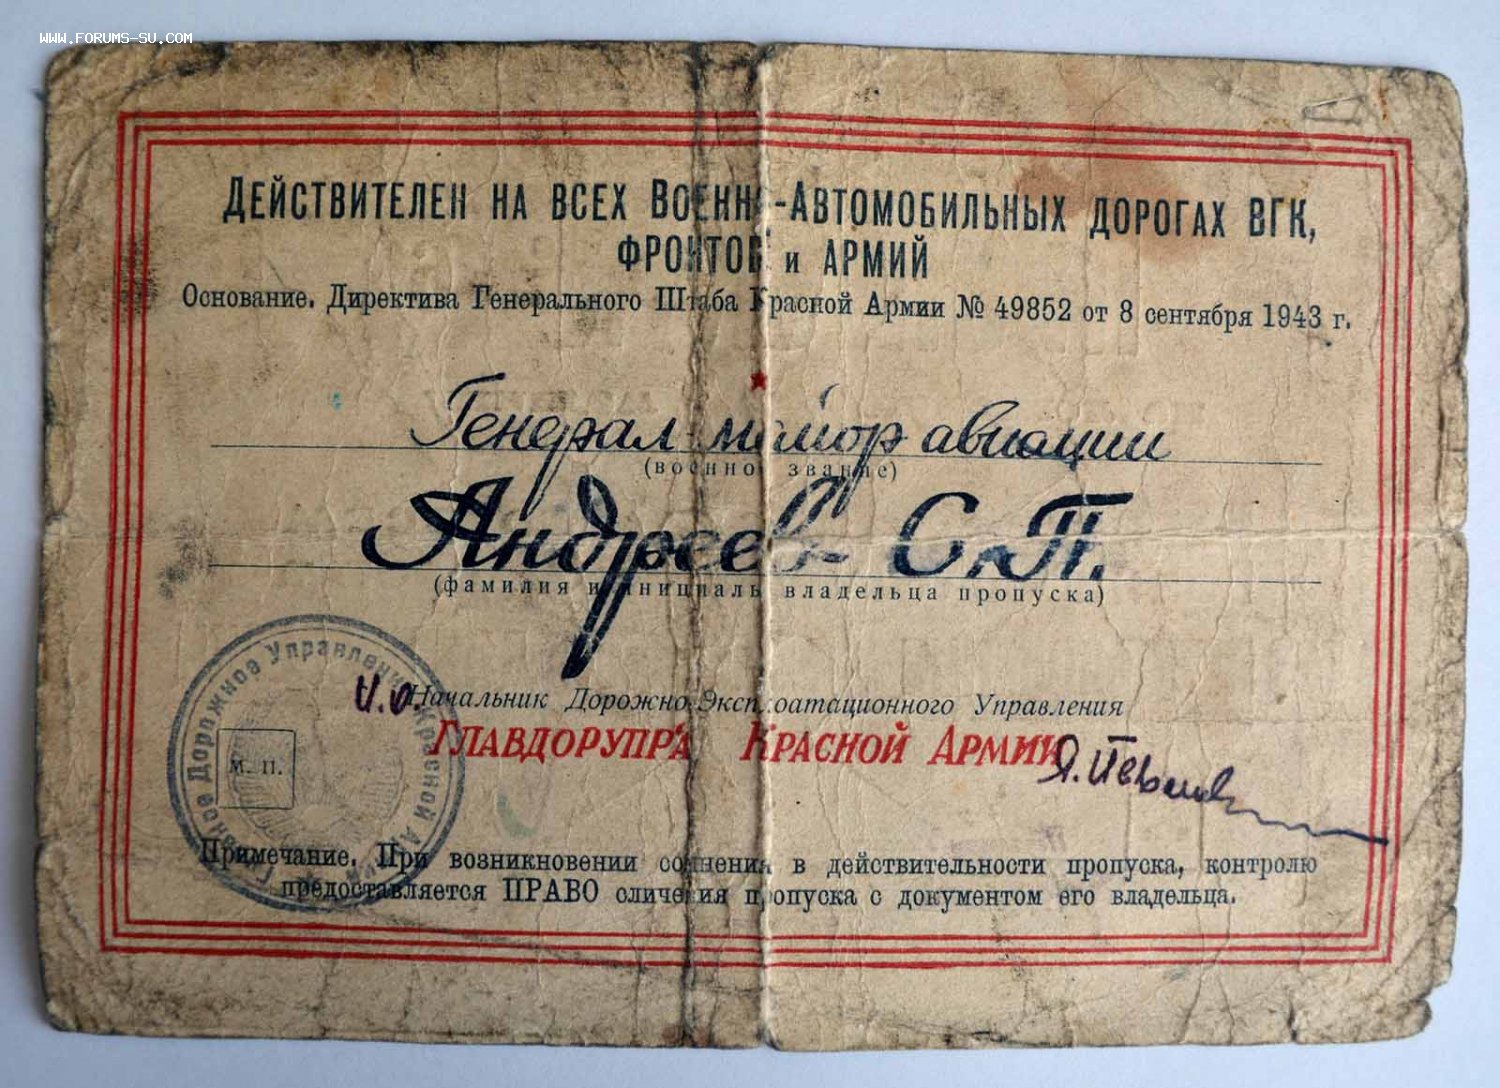 WWW.FORUMS-SU.COM
ДЕЙСТВИТЕЛЕН НА ВСЕХ ВОЕННО-АВТОМОБИЛЬНЫХ ДОРОГАХ ВГК,
ФРОНТОВ и АРМИЙ
Основание. Директива Генерального Штаба Красной Армии № 49852 от 8 сентября 1943 г.
Генерал-майор авиации
(военное звание)
Андреев С.П.
(фамилия и инициалы владельца пропуска)
И.о. Начальник Дорожно-Эксплоатационного Управления
ГЛАВДОРУПРА КРАСНОЙ АРМИИ
Главное Дорожное Управление Красной Армии
М. П.
Примечание. При возникновении сомнения в действительности пропуска, контролю
предоставляется ПРАВО сличения пропуска с документом его владельца.